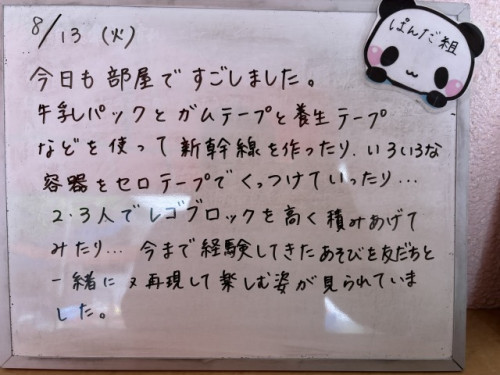 8/13 (火)
ぱんだ組
今日も部屋ですごしました。
牛乳パックとガムテープと養生テープ
などを使って新幹線を作ったり、いろいろな
容器をセロテープでくっつけていったり…
2・3人でレゴブロックを高く積みあげて
みたり… 今まで経験してきたあそびを友だちと
一緒に 再現して楽しむ姿が見られていま
した。